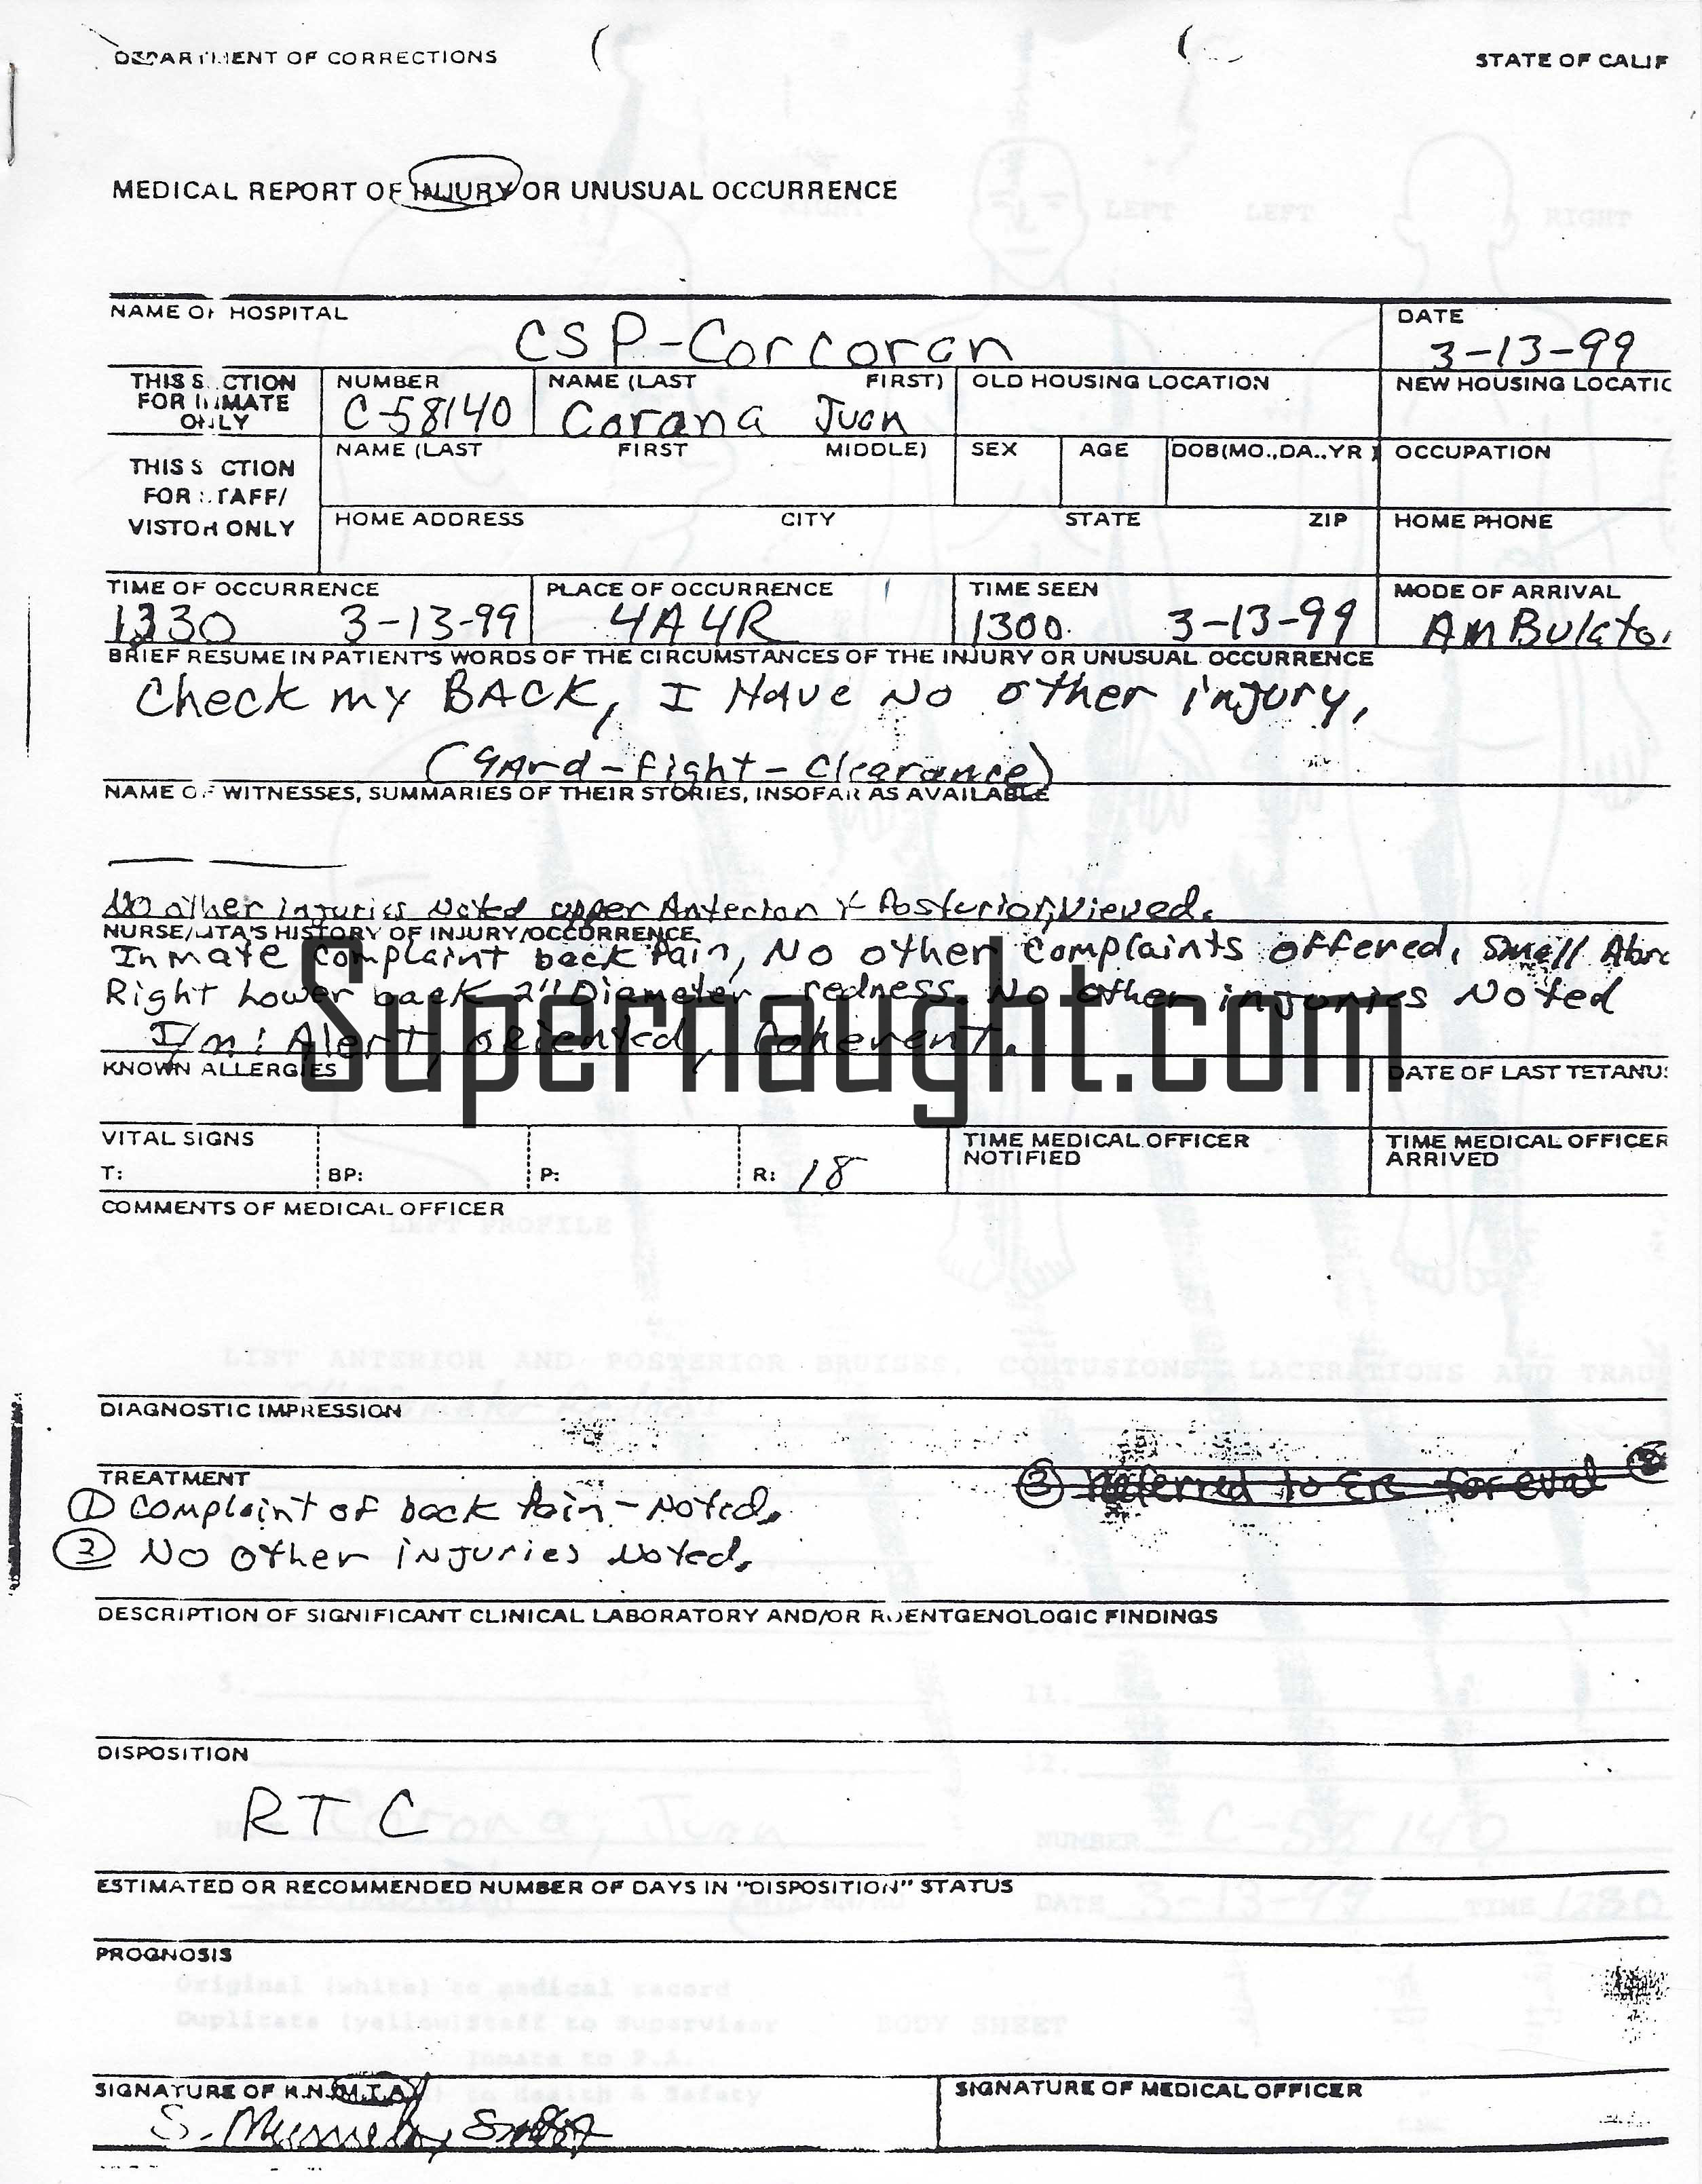 DEPARTMENT OF CORRECTIONS STATE OF CALIF
MEDICAL REPORT OF INJURY OR UNUSUAL OCCURRENCE
NAME OF HOSPITAL DATE
CSP-Corcoran 3-13-99
THIS SECTION FOR INMATE ONLY NUMBER NAME (LAST FIRST) OLD HOUSING LOCATION NEW HOUSING LOCATIO
C-58140 Corona Juan
THIS SECTION FOR STAFF/ VISTOR ONLY NAME (LAST FIRST MIDDLE) SEX AGE DOB(MO.,DA.,YR) OCCUPATION
HOME ADDRESS CITY STATE ZIP HOME PHONE
TIME OF OCCURRENCE PLACE OF OCCURRENCE TIME SEEN MODE OF ARRIVAL
3-13-99 4A4R 1300 3-13-99 AmBulato
BRIEF RESUME IN PATIENT'S WORDS OF THE CIRCUMSTANCES OF THE INJURY OR UNUSUAL OCCURRENCE
Check my BACK, I Have No other injury,
(YArd-Fight-Clearance)
NAME OF WITNESSES, SUMMARIES OF THEIR STORIES, INSOFAR AS AVAILABLE
No other injuries Noted upper Anterior & Posterior, Viewed.
NURSE/MTA'S HISTORY OF INJURY/OCCURRENCE
Inmate complaint back Pain, No other complaints offered, Small Abra
Right Lower back 2" Diameter - redness. No other injuries Noted
I/m: Alert, oriented, Coherent.
Supernaught.com
KNOWN ALLERGIES DATE OF LAST TETANUS
VITAL SIGNS TIME MEDICAL OFFICER NOTIFIED TIME MEDICAL OFFICER ARRIVED
T: BP: P: R: 18
COMMENTS OF MEDICAL OFFICER
LEFT PROFILE
LIST ANTERIOR AND POSTERIOR BRUISES, CONTUSIONS, LACERATIONS AND TRAU
DIAGNOSTIC IMPRESSION
TREATMENT
① Complaint of back Pain - Noted.
② No other injuries Noted.
③ Referred to ERC for eval
DESCRIPTION OF SIGNIFICANT CLINICAL LABORATORY AND/OR ROENTGENOLOGIC FINDINGS
5. 11.
DISPOSITION
12.
RTC
NAME Corona, Juan NUMBER C-58140
ESTIMATED OR RECOMMENDED NUMBER OF DAYS IN "DISPOSITION" STATUS
DATE 3-13-99 TIME 1230
PROGNOSIS
Original (white) to medical record
Duplicate (yellow) Staff to Supervisor BODY SHEET
Inmate to P.A.
to Health & Safety
SIGNATURE OF R.N./M.T.A. SIGNATURE OF MEDICAL OFFICER